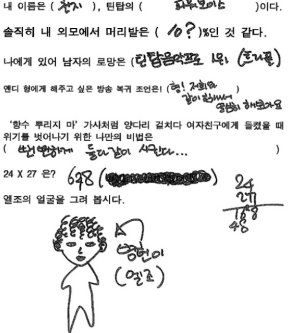 내 이름은 ( 천지 ), 틴탑의 ( 파워보이스 )이다.
솔직히 내 외모에서 머리발은 ( 10? )%인 것 같다.
나에게 있어 남자의 로망은 (틴탑음악프로 1위 (트리플)
앤디 형에게 해주고 싶은 방송 복귀 조언은! (형! 저희와 같이
'향수 뿌리지 마' 가사처럼 양다리 걸치다 여자친구에게 들켰을 때
위기를 벗어나기 위한 나만의 비법은
( 뻔뻔하게 둘다같이 사귄다... )
24 X 27 은? 648 ( )
24
27
168
48
엘조의 얼굴을 그려 봅시다.
병헌이
(엘조)